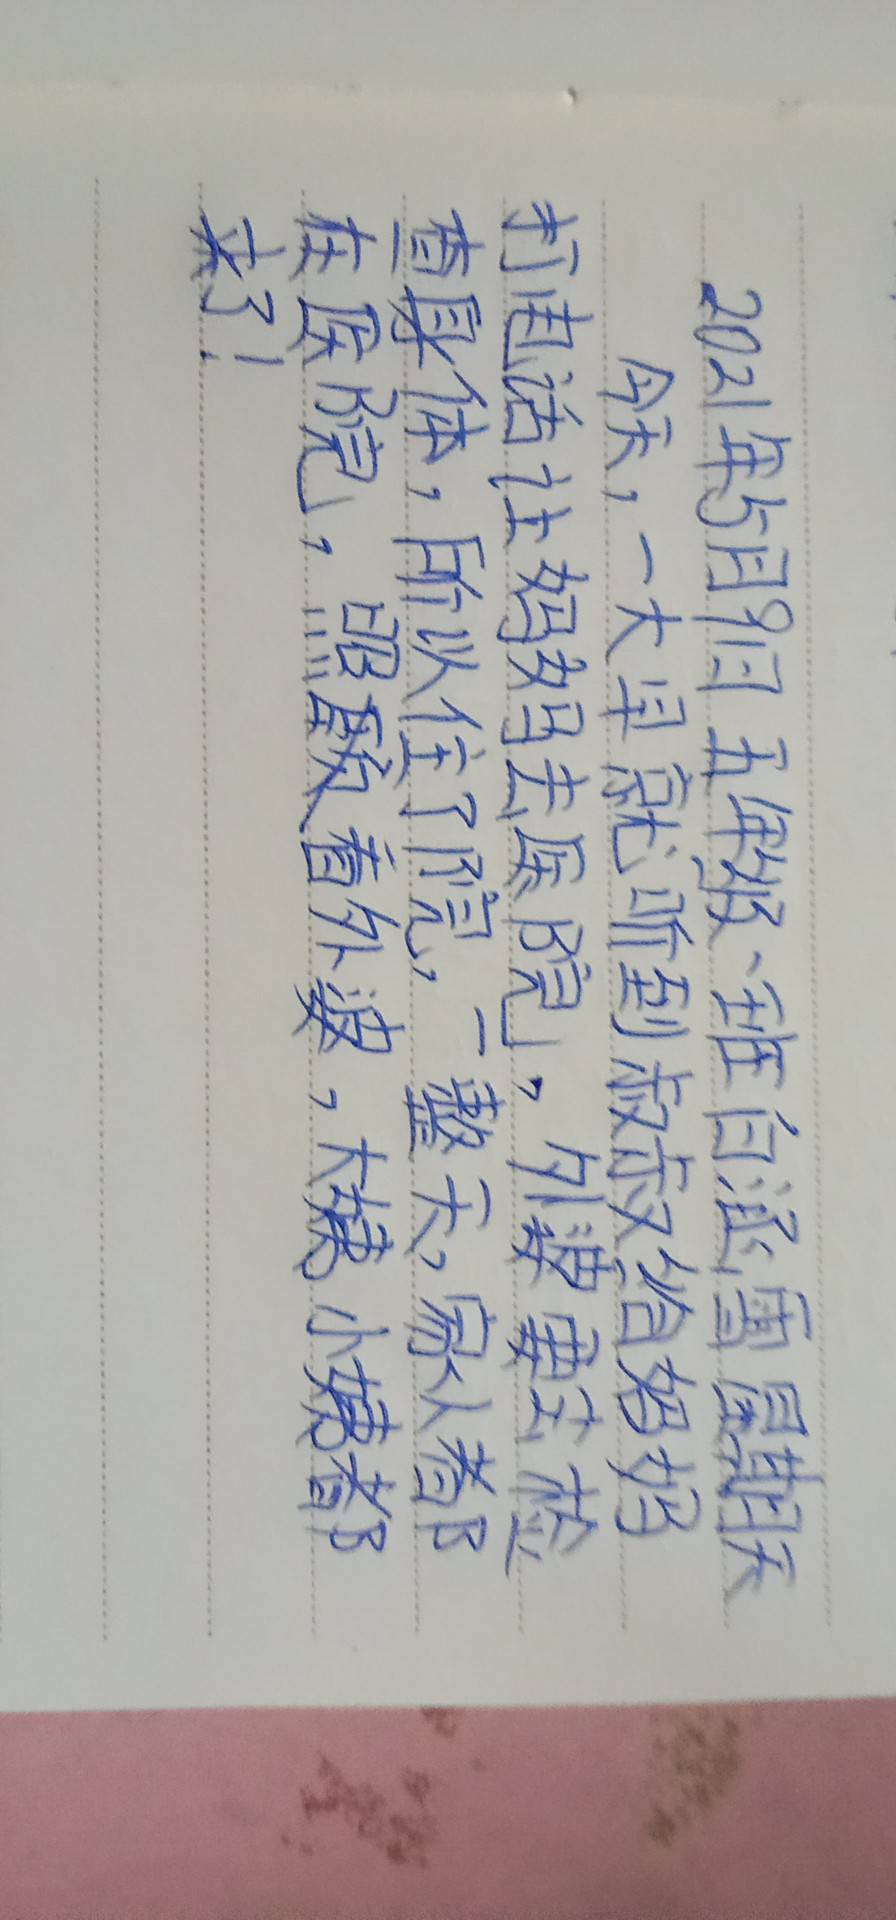 2021年5月9日 五年级一班白涵雪 星期天
今天，一大早就听到叔叔给奶奶
打电话让妈妈去医院，外婆要去检
查身体，所以住了院，一整天，家人都
在医院，照顾着外婆，大姨小姨都
来了！